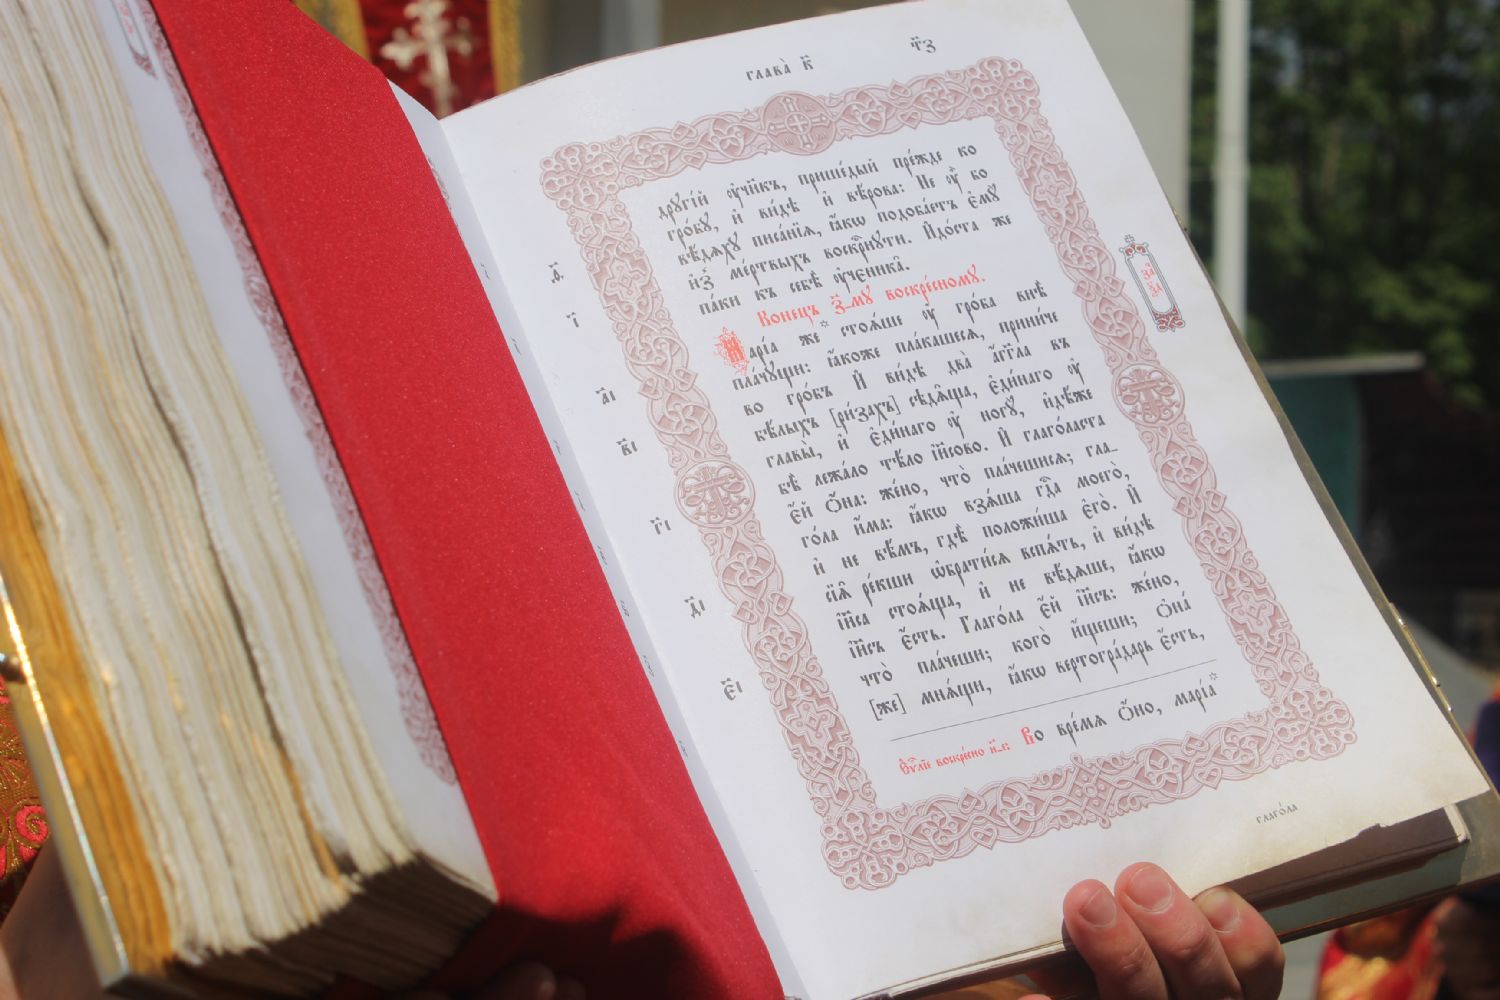 глава̀ к҃
т҃ѕ
дрꙋгі́й ᲂу҆чн҃къ, прише́дый пре́жде ко
гро́бꙋ, и҆ ви́дѣ и҆ вѣ́рова: Не ᲂу҆̀ во
вѣ́дѧхꙋ писа́нїѧ, ꙗ҆́кѡ подоба́етъ є҆мꙋ̀
и҆з̾ ме́ртвыхъ воскрⷭ҇нꙋти. И҆до́ста же
па́ки къ себѣ̀ ᲂу҆ченика̑.
Коне́цъ з҃-мꙋ воскре́сномꙋ.
Марі́а же* стоѧ́ше ᲂу҆ гро́ба внѣ̀
пла́чꙋщи: ꙗ҆́коже пла́кашесѧ, прини́че
во гро́бъ И҆ ви́дѣ два̀ а҆́гг҃ла въ
бѣ́лыхъ [ри́захъ] сѣдѧ̑ща, є҆ди́наго ᲂу҆
главы̀, и҆ є҆ди́наго ᲂу҆ ногꙋ̀, и҆дѣ́же
бѣ̀ лежа́ло тѣ́ло і҆и҃сово. И҆ глаго́ласта
є҆́й ѻ҆́на: же́но, что̀ пла́чешисѧ; гла-
го́ла и҆́ма: ꙗ҆́кѡ взѧ́ша гдⷭ҇а моего̀,
и҆ не вѣ́мъ, гдѣ̀ положи́ша є҆го̀. И҆
сїѧ̑ ре́кши ѡ҆брати́сѧ вспѧ́ть, и҆ ви́дѣ
і҆и҃са стоѧ́ща, и҆ не вѣ́дѧше, ꙗ҆́кѡ
і҆и҃съ є҆́сть. Глаго́ла є҆́й і҆и҃съ: же́но,
что̀ пла́чеши; кого̀ и҆́щеши; Ѻ҆на́
[же] мнѧ́щи, ꙗ҆́кѡ вертогра́дарь є҆́сть,
є҆ѵⷢ҇лїе воскре́сно и҃-е: Во вре́мѧ ѻ҆́но, марі́а*
глаго́ла
ѳ҃.
і҃
а҃і
в҃і
г҃і
д҃і
є҃і